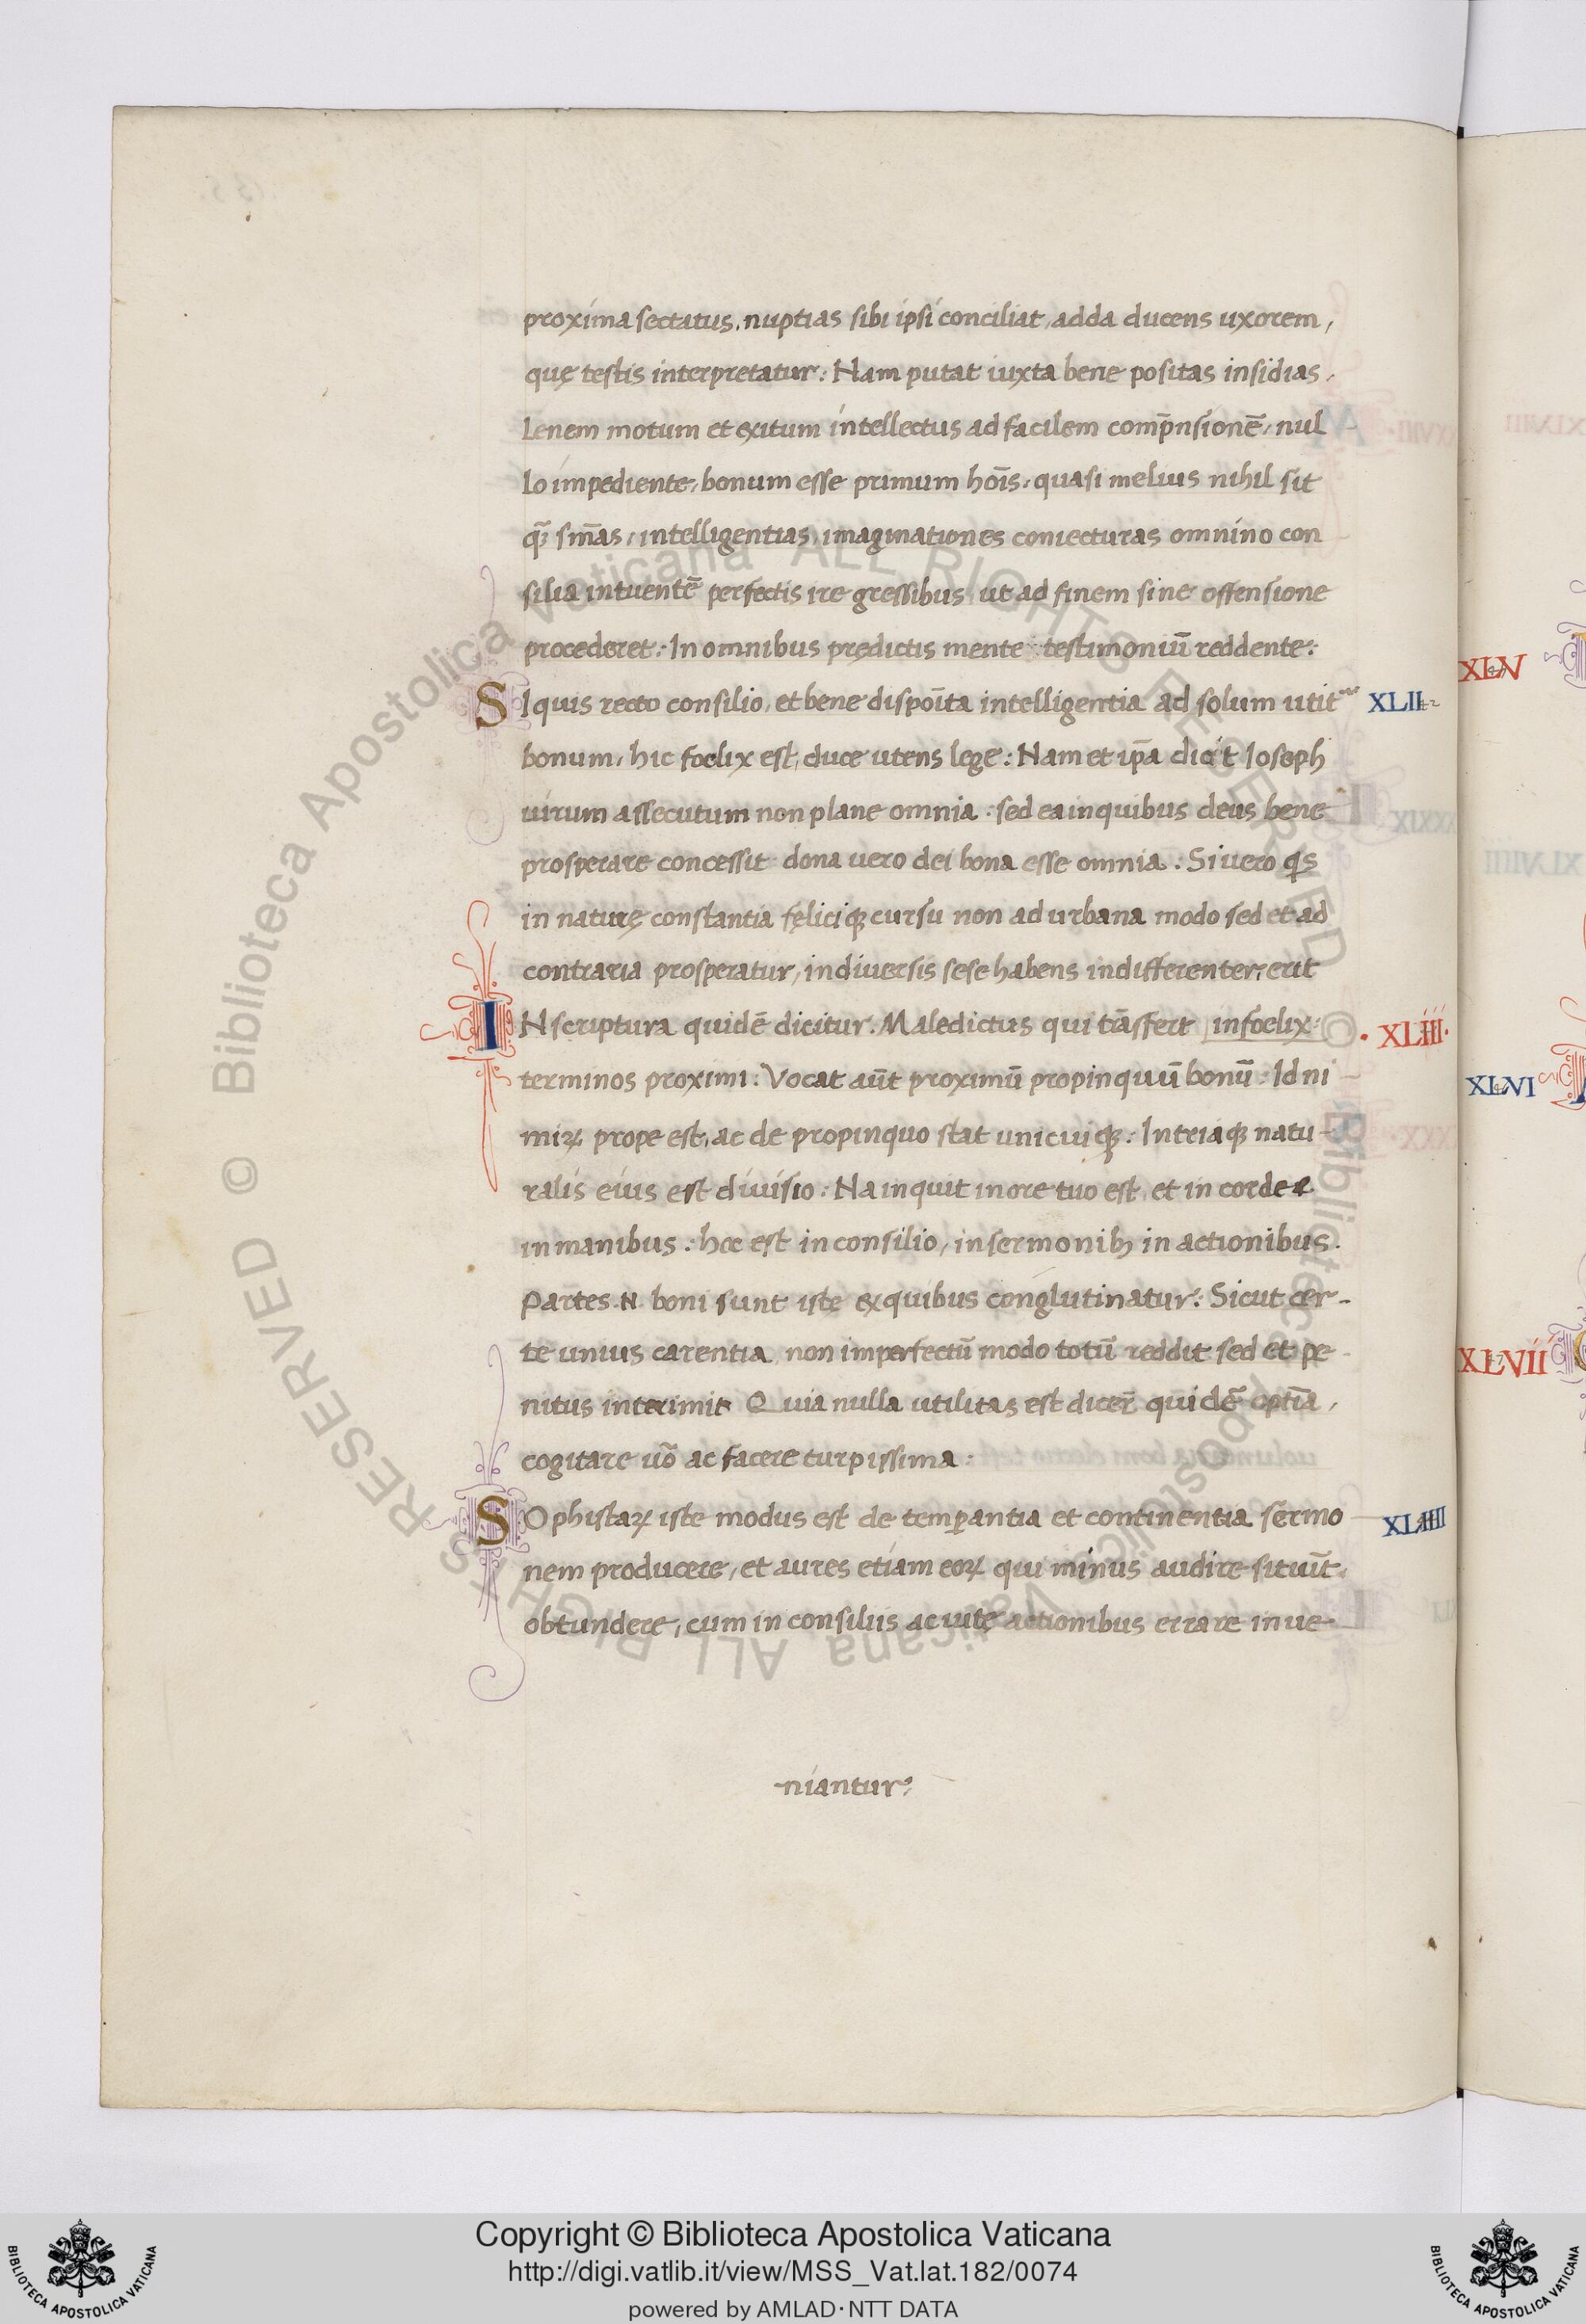 proxima sectatus, nuptias sibi ipsi conciliat, adda ducens uxorem,
quę testis interpretatur: Nam putat iuxta bene positas insidias,
Lenem motum et exitum intellectus ad facilem comp̄nsionē, nul
lo impediente, bonum esse primum hoīs, quasi melius nihil sit
q̃ sm̄as, intelligentias, imaginationes coniecturas omnino con
silia intuentē perfectis ire gressibus, ut ad finem sine offensione
procederet: In omnibus prędictis mente testimoniū reddente:
SI quis recto consilio, et bene dispoīta intelligentia ad solum utit^ur XLII 42
bonum, hic foelix est, duce utens lege: Nam et ip̄a dicit Ioseph
uirum assecutum non plane omnia: sed ea in quibus deus bene
prosperare concessit dona uero dei bona esse omnia: Si uero qs
in naturę constantia fęliciqꝫ cursu non ad urbana modo sed et ad
contraria prosperatur, in diuersis sese habens indifferenter, erit
IN scriptura quidē dicitur. Maledictus qui trāsfert infoelix: · XLIII ·
terminos proximi: Vocat aūt proximū propinquū bonū: Id ni
miꝝ prope est, ac de propinquo stat unicuiqꝫ: In triaqꝫ natu-
ralis eius est diuisio: Na inquit in ore tuo est, et in corde &
in manibus: hoc est in consilio, in sermonibꝫ in actionibus.
Partes .N. boni sunt iste ex quibus conglutinatur: Sicut cer-
te unius carentia, non imperfectū modo totū reddit sed et pe-
nitus interimit Quia nulla utilitas est dicer̄ quidē optīa,
cogitare uō ac facere turpissima:
SOphistaꝝ iste modus est de temperantia et continentia sermo XLIIII
nem producere, et aures etiam eoꝝ qui minus audire sitiūt,
obtundere, cum in consiliis ac uitę actionibus errare inue-
niantur:
XLV
XLVI
XLVII
Copyright © Biblioteca Apostolica Vaticana
http://digi.vatlib.it/view/MSS_Vat.lat.182/0074
powered by AMLAD·NTT DATA
BIBLIOTECA APOSTOLICA VATICANA
BIBLIOTECA APOSTOLICA VATICANA
© Biblioteca Apostolica Vaticana ALL RIGHTS RESERVED © Biblioteca Apostolica Vaticana ALL RIGHTS RESERVED